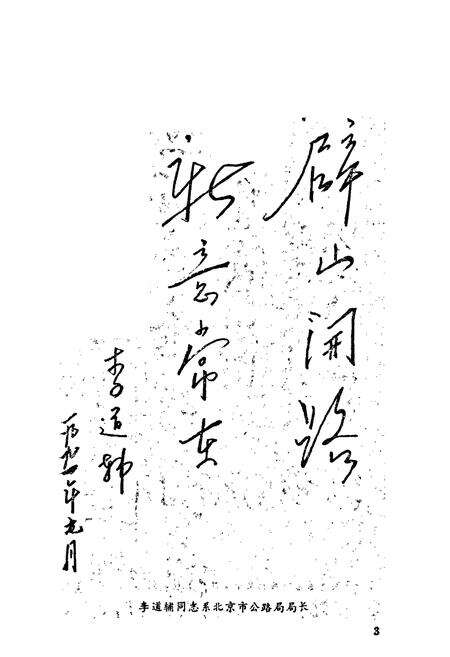 辟山開路
新意常在
李道辅
一九九一年元月
李道辅同志系北京市公路局局长
3